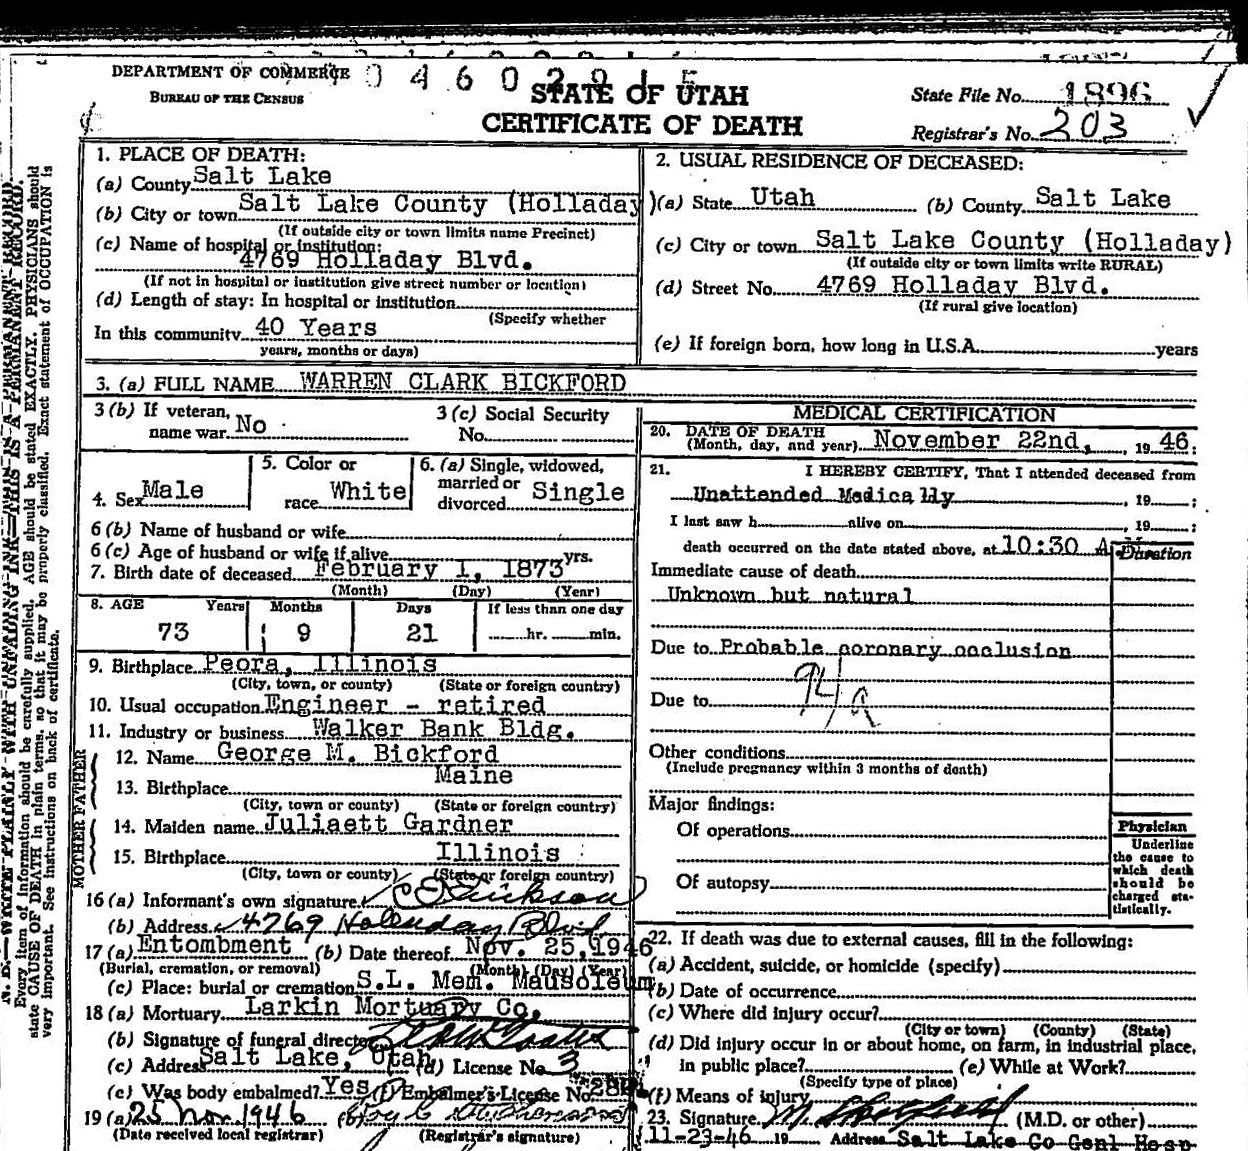 DEPARTMENT OF COMMERCE
BUREAU OF THE CENSUS
STATE OF UTAH
CERTIFICATE OF DEATH
State File No. 1896
Registrar's No. 203
N. B.—WRITE PLAINLY WITH UNFADING INK—THIS IS A PERMANENT RECORD.
Every item of information should be carefully supplied. AGE should be stated EXACTLY. PHYSICIANS should
state CAUSE OF DEATH in plain terms, so that it may be properly classified. Exact statement of OCCUPATION is
very important. See instructions on back of certificate.
1. PLACE OF DEATH:
(a) County Salt Lake
(b) City or town Salt Lake County (Holladay)
(If outside city or town limits name Precinct)
(c) Name of hospital or institution:
4769 Holladay Blvd.
(If not in hospital or institution give street number or location)
(d) Length of stay: In hospital or institution
(Specify whether
In this community 40 Years
years, months or days)
2. USUAL RESIDENCE OF DECEASED:
(a) State Utah (b) County Salt Lake
(c) City or town Salt Lake County (Holladay)
(If outside city or town limits write RURAL)
(d) Street No. 4769 Holladay Blvd.
(If rural give location)
(e) If foreign born, how long in U.S.A. years
3. (a) FULL NAME WARREN CLARK BICKFORD
3 (b) If veteran, name war No
3 (c) Social Security No.
4. Sex Male
5. Color or race White
6. (a) Single, widowed, married or divorced Single
6 (b) Name of husband or wife
6 (c) Age of husband or wife if alive yrs.
7. Birth date of deceased February 1, 1873
(Month) (Day) (Year)
8. AGE Years Months Days If less than one day
73 9 21 hr. min.
9. Birthplace Peora, Illinois
(City, town, or county) (State or foreign country)
10. Usual occupation Engineer - retired
11. Industry or business Walker Bank Bldg.
FATHER
12. Name George M. Bickford
13. Birthplace Maine
(City, town or county) (State or foreign country)
MOTHER
14. Maiden name Juliaett Gardner
15. Birthplace Illinois
(City, town, or county) (State or foreign country)
16 (a) Informant's own signature
(b) Address 4769 Holladay Blvd
17 (a) Entombment (b) Date thereof Nov. 25, 1946
(Burial, cremation, or removal) (Month) (Day) (Year)
(c) Place: burial or cremation S.L. Mem. Mausoleum
18 (a) Mortuary Larkin Mortuary Co.
(b) Signature of funeral director
(c) Address Salt Lake, Utah (d) License No. 3
(e) Was body embalmed? Yes (f) Embalmer's License No.
19 (a) 25 Nov. 1946 (b)
(Date received local registrar) (Registrar's signature)
MEDICAL CERTIFICATION
20. DATE OF DEATH
(Month, day, and year) November 22nd, 1946.
21. I HEREBY CERTIFY, That I attended deceased from
Unattended Medically , 19 ;
I last saw h alive on , 19 ;
death occurred on the date stated above, at 10:30 A.M.
Duration
Immediate cause of death
Unknown but natural
Due to Probable coronary occlusion
94/a
Due to
Other conditions
(Include pregnancy within 3 months of death)
Major findings:
Of operations
Of autopsy
Physician
Underline
the cause to
which death
should be
charged sta-
tistically.
22. If death was due to external causes, fill in the following:
(a) Accident, suicide, or homicide (specify)
(b) Date of occurrence
(c) Where did injury occur?
(City or town) (County) (State)
(d) Did injury occur in or about home, on farm, in industrial place,
in public place? (e) While at Work?
(Specify type of place)
(f) Means of injury
23. Signature (M.D. or other)
11-23-46 19 Address Salt Lake Co Genl Hosp